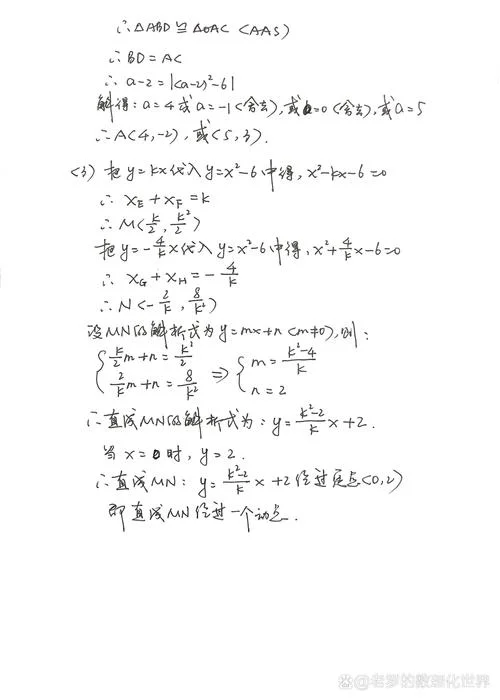 ∴△ABD≌△OAC (AAS)
∴BD=AC
∴a-2=|(a-2)²-6|
解得:a=4或a=-1(舍去),或a=0(舍去),或a=5
∴A(4,-2),或(5,3).
(3) 把y=kx代入y=x²-6中得,x²-kx-6=0
∴x_E+x_F=k
∴M(k/2,k²/2)
把y=-4/k x代入y=x²-6中得,x²+4/k x-6=0
∴x_G+x_H=-4/k
∴N(-2/k,8/k²)
设MN的解析式为y=mx+n(m≠0),则:
{k/2 m+n=k²/2 ⇒ {m=k²-4/k
{2/k m+n=8/k² n=2
∴直线MN的解析式为:y=k²-2/k x+2.
当x=0时,y=2.
∴直线MN:y=k²-2/k x+2经过定点(0,2)
即直线MN经过一个动点.
老罗的数智化世界